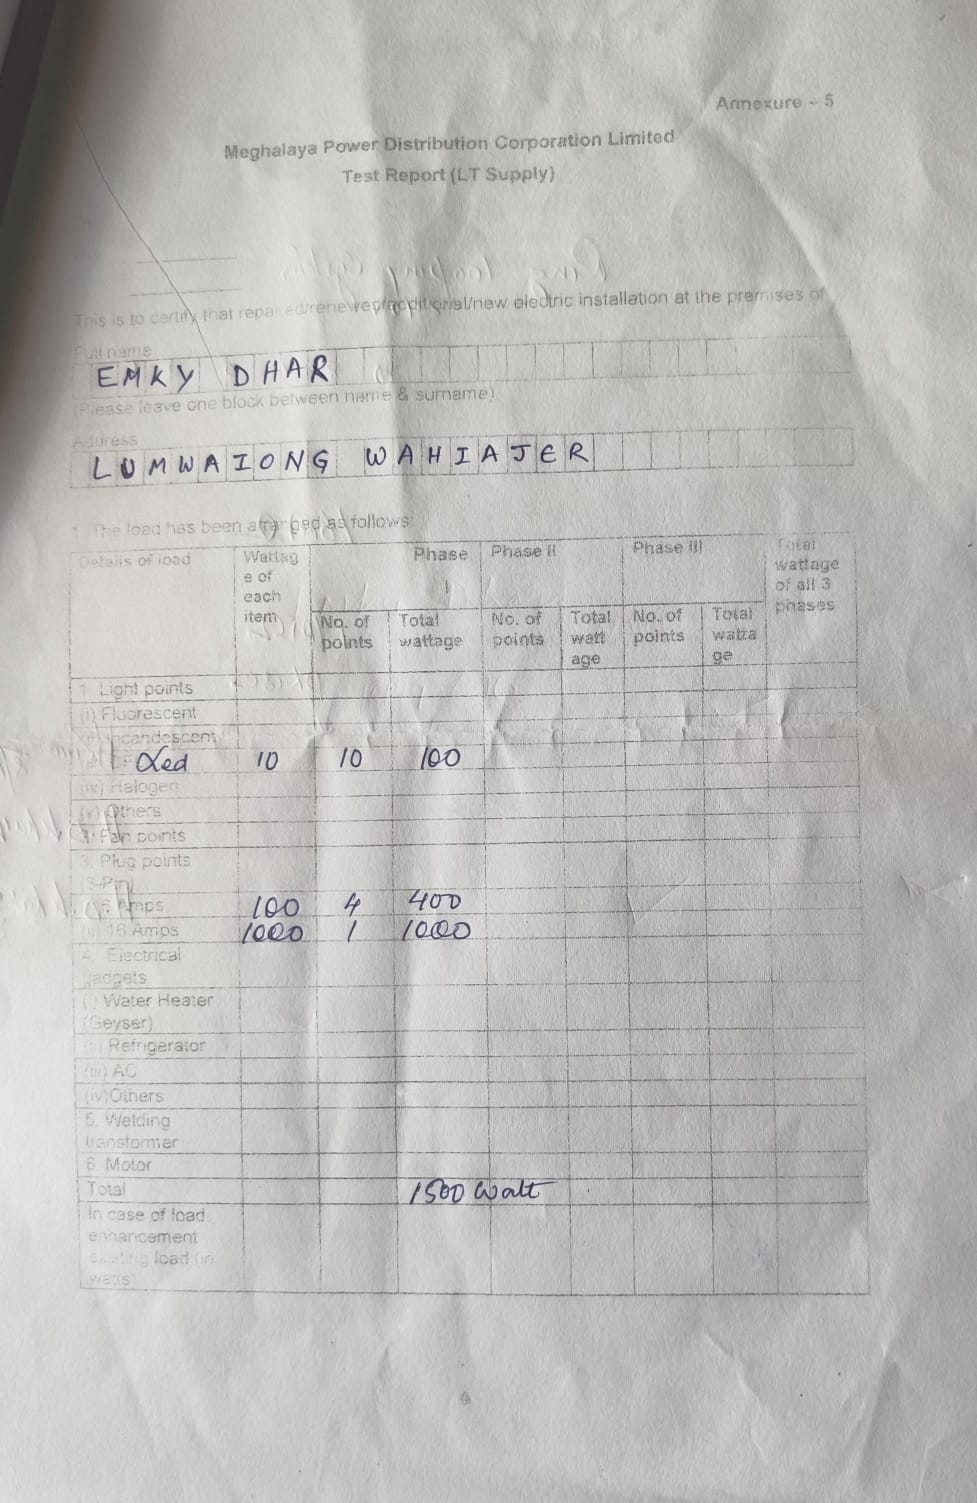 Annexure - 5
Meghalaya Power Distribution Corporation Limited
Test Report (LT Supply)
This is to certify that repaired/renewed/additional/new electric installation at the premises of
Full name
EMKY DHAR
(Please leave one block between name & surname)
Address
LUMWAIONG WAHIAJER
The load has been arranged as follows:
Details of load Wattag e of each item Phase I Phase II Phase III Total wattage of all 3 phases
No. of points Total wattage No. of points Total watt age No. of points Total watta ge
1. Light points
(i) Fluorescent
Incandescent
Led 10 10 100
(iv) Halogen
(v) Others
Fan points
3. Plug points
3-Pin
5 Amps 100 4 400
(ii) 16 Amps 1000 1 1000
4. Electrical
gadgets
(i) Water Heater
(Geyser)
(ii) Refrigerator
(iii) AC
(iv) Others
5. Welding
transformer
6. Motor
Total 1500 Watt
In case of load
enhancement
existing load (in
watts)